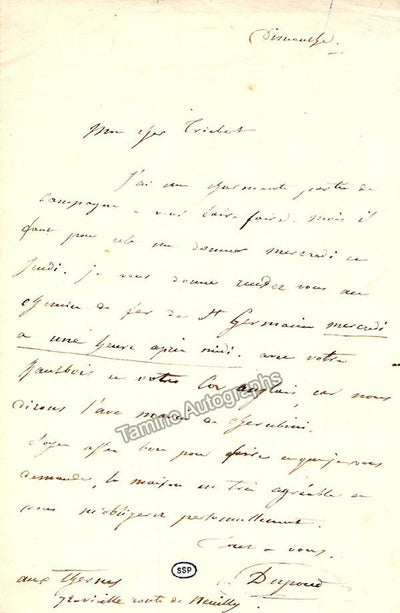 Dimanche.
Mon cher Triebert
J'ai une charmante partie de
campagne a vous faire faire. mais il
faut pour cela me donner mercredi ou
jeudi. je vous donne rendez vous au
chemin de fer de St Germain mercredi
a une heure après midi. avec votre
hautbois et votre Cor anglais car nous
dirons l'ave maria de Cherubini.
Soyez assez bon pour faire ce que je vous
demande, la maison est très agréable et
vous m'obligerez personnellement.
Tout a vous.
aux Thernes
72 vieille route de Neuilly
SSP
Tamino Autographs